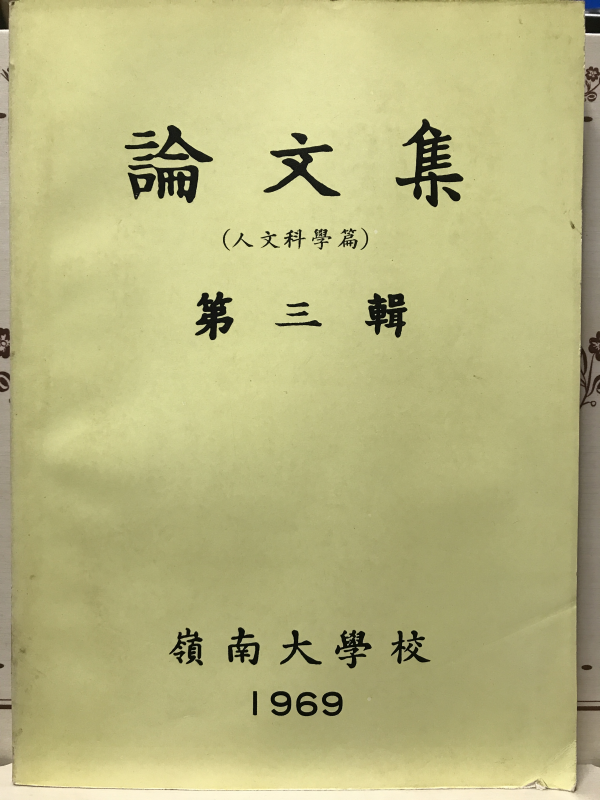 論文集
(人文科學篇)
第三輯
嶺南大學校
1969